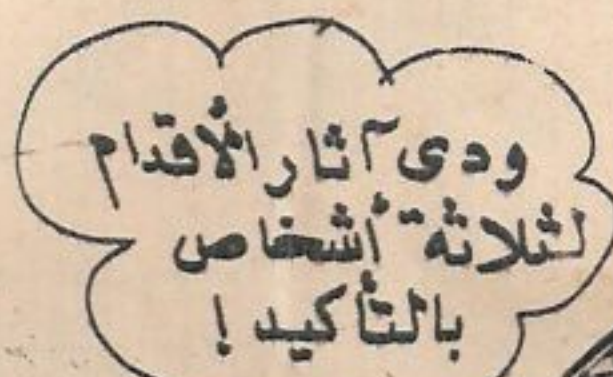 ودى آثار الأقدام
لثلاثة أشخاص
بالتأكيد !